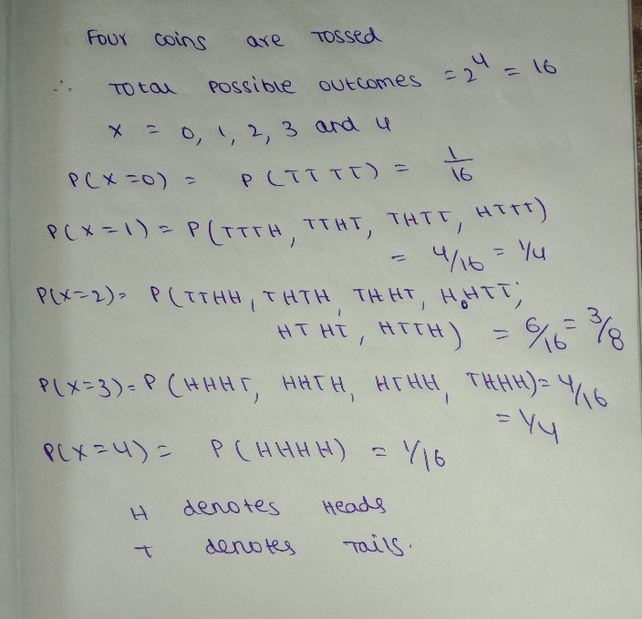 Four coins are tossed
∴ Total possible outcomes = 2⁴ = 16
X = 0, 1, 2, 3 and 4
P(X=0) = P(TTTT) = 1/16
P(X=1) = P(TTTH, TTHT, THTT, HTTT)
= 4/16 = 1/4
P(X=2) = P(TTHH, THTH, THHT, HHTT,
HTHT, HTTH) = 6/16 = 3/8
P(X=3) = P(HHHT, HHTH, HTHH, THHH) = 4/16
= 1/4
P(X=4) = P(HHHH) = 1/16
H denotes Heads
T denotes Tails.